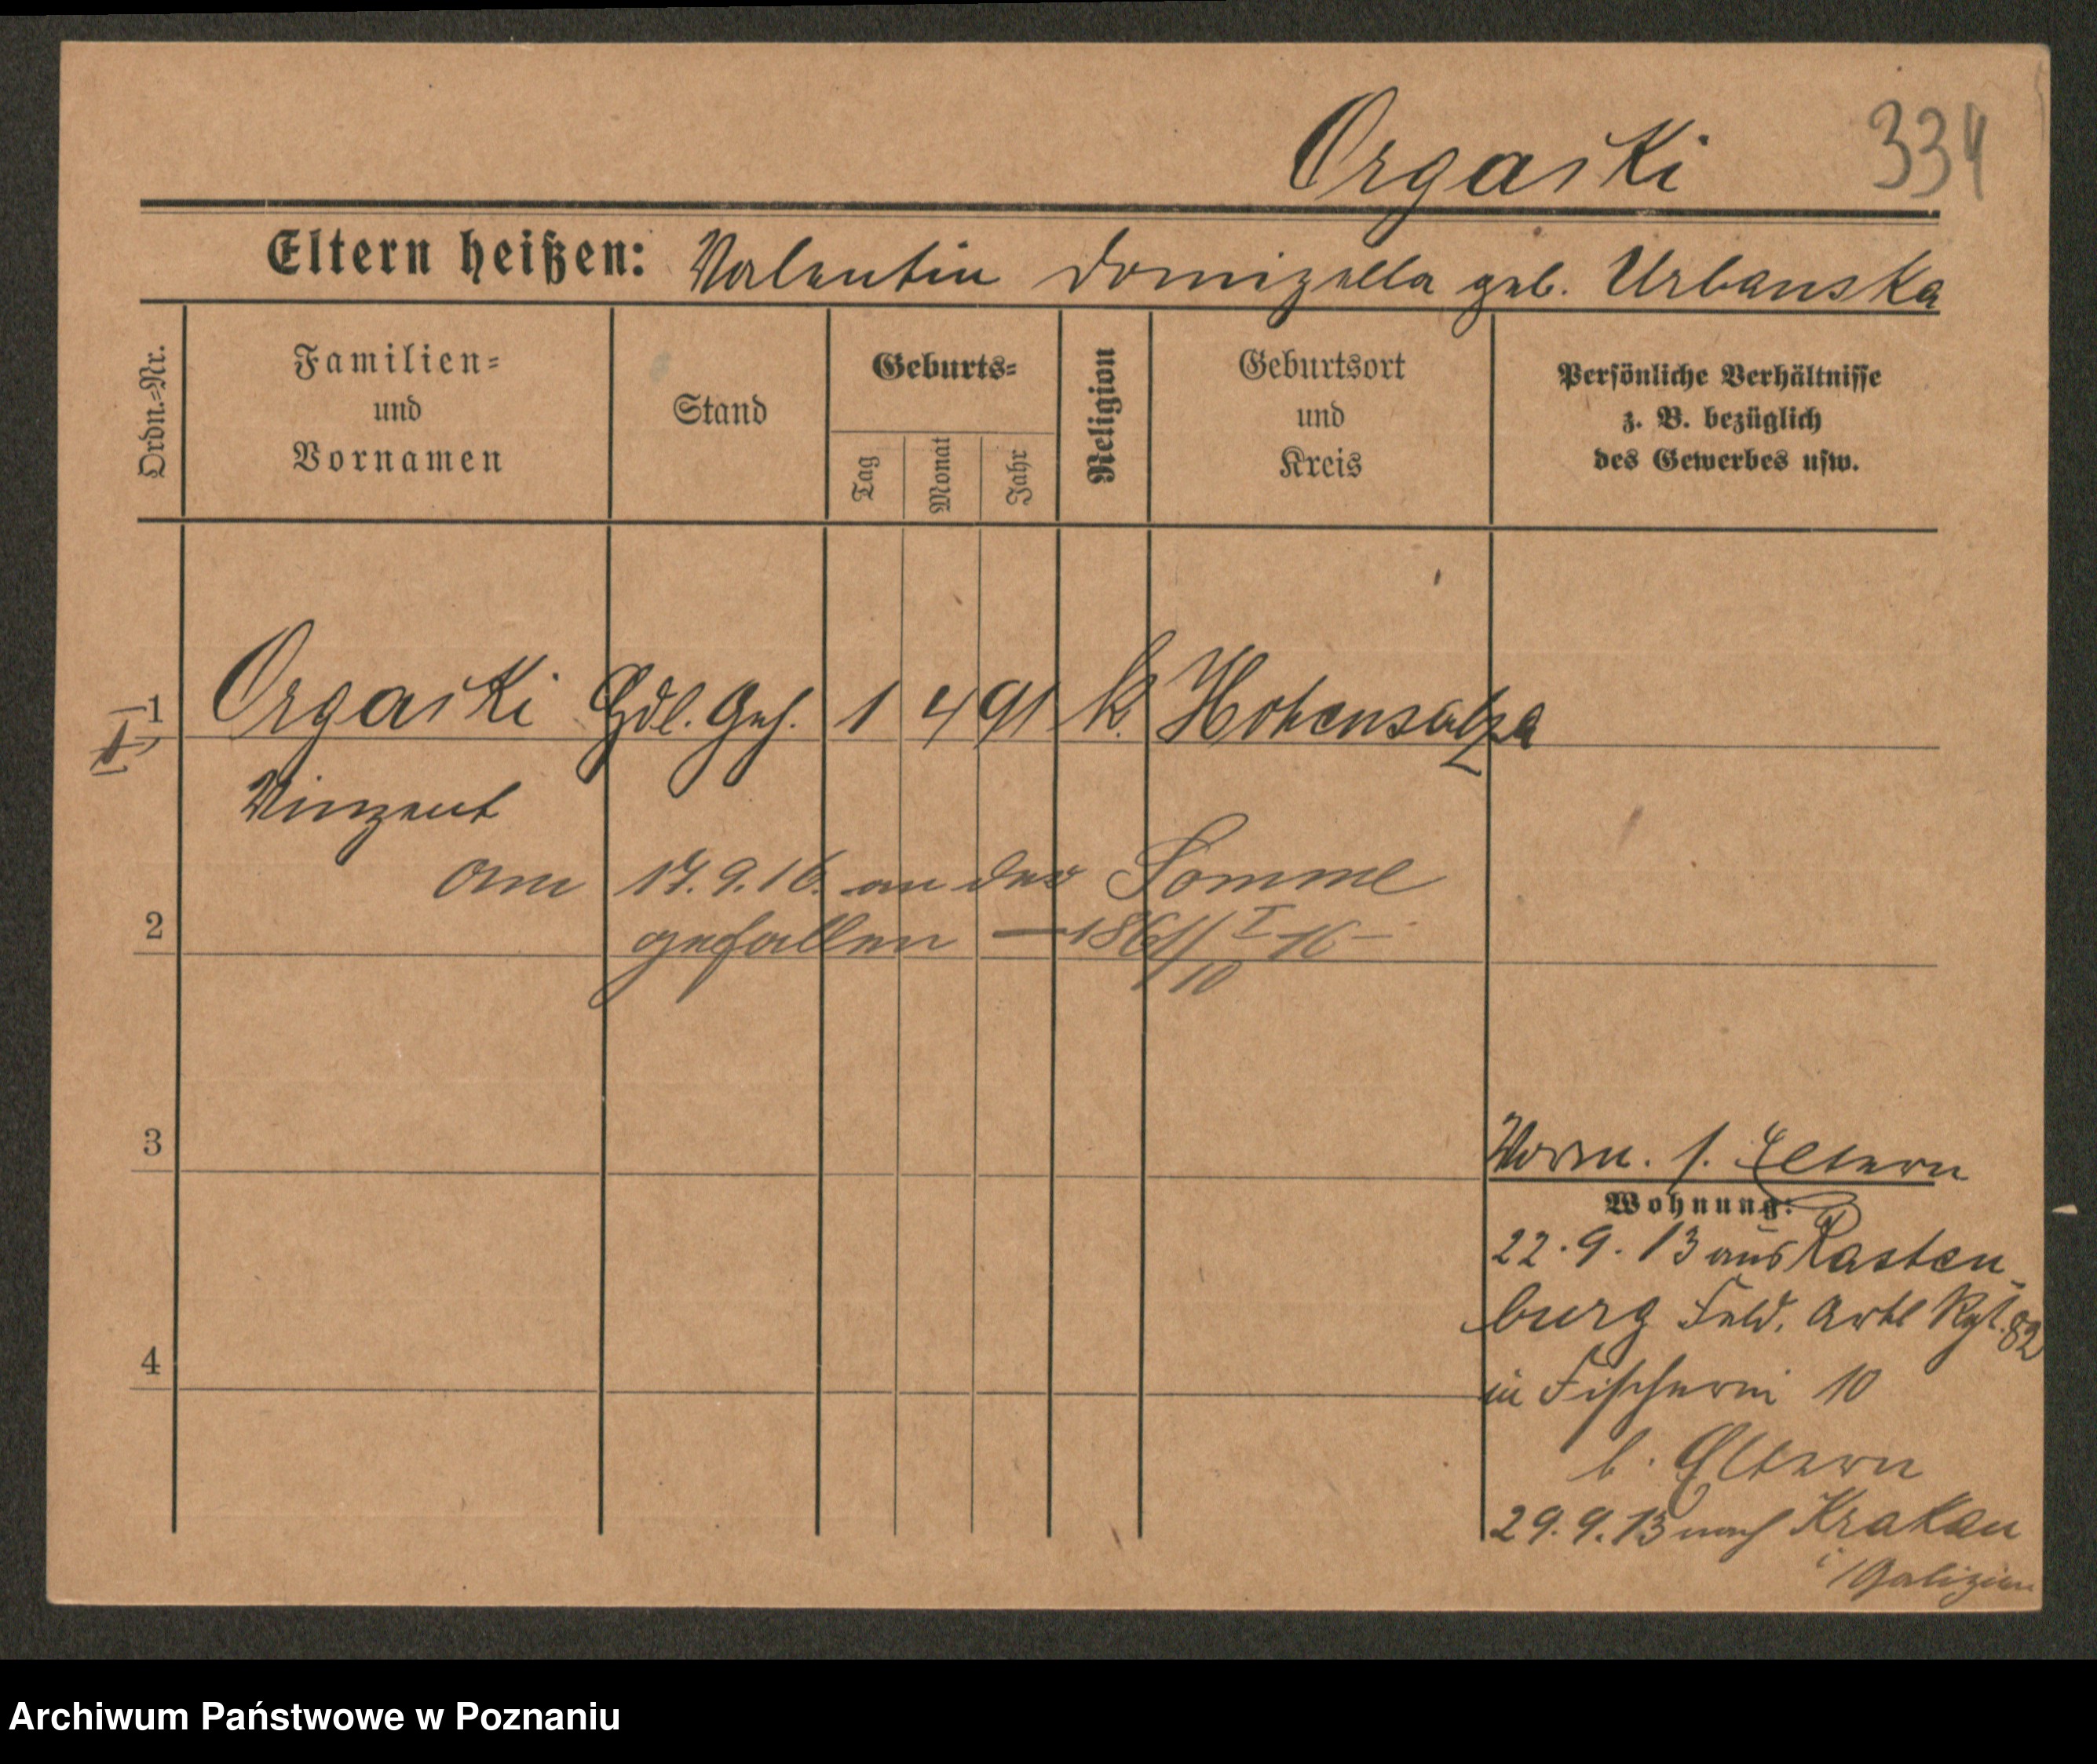 Orgaski 334
Eltern heißen: Valentin Domizella geb. Urbanska
Ordn.-Nr.
Familien-
und
Vornamen
Stand
Geburts-
Tag
Monat
Jahr
Religion
Geburtsort
und
Kreis
Persönliche Verhältnisse
z. B. bezüglich
des Gewerbes usw.
1 Orgaski Hdl. Geh. 1 4 91 k. Hohensalza
Vinzent
am 17.9.16. an der Somme
2 gefallen — 1861/10 I 16 —
3
Vorm. s. Eltern
Wohnung:
22.9.13 aus Rasten-
burg Feld. Artl Rgt. 82
4
in Fischerei 10
b. Eltern
29.9.13 nach Krakau
i/Galizien
Archiwum Państwowe w Poznaniu